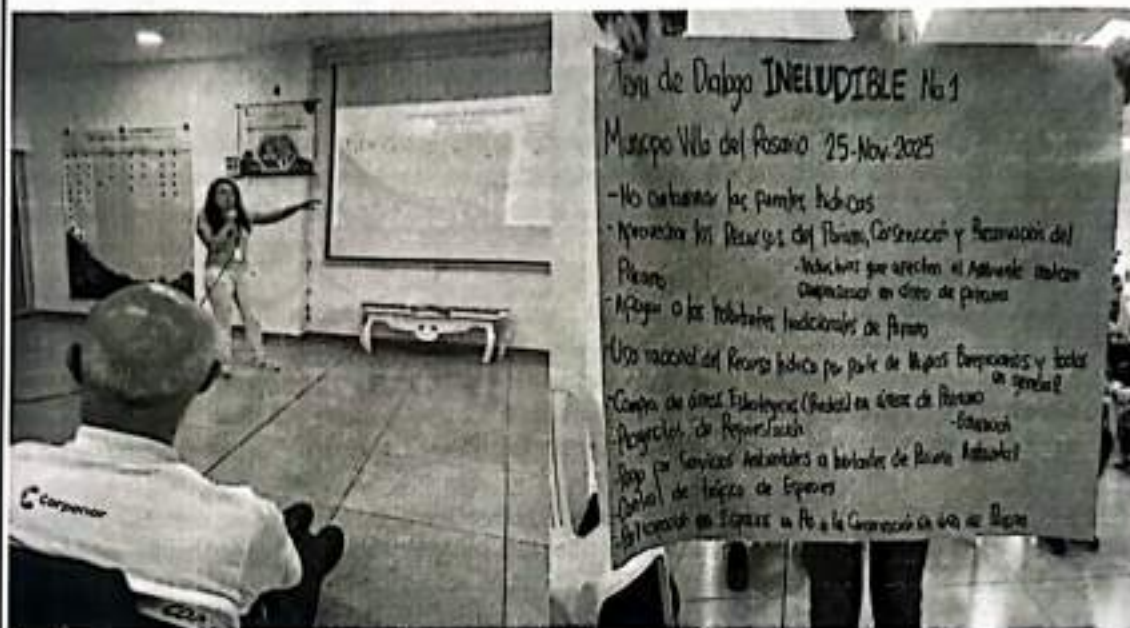 Corponor
de Dialogo INELUDIBLE No 1
Municipio Villa del Rosario 25-Nov-2025
- No contaminar las fuentes hidricas
- Aprovechar los Recursos del Paramo, Conservación y Preservación del
Páramo
- Industrias que afecten el Ambiente realicen
compensacion en areas de páramo
- Apoyar a los habitantes tradicionales de Paramo
- Uso racional del Recurso hidrico por parte de Beneficiarios y todos
en general
- Compra de áreas Estrategicas (Predios) en áreas de Paramo
- Proyectos de Reforestación
- Educación
- Pago por Servicios Ambientales a habitantes de Paramo
- Control de Tráfico de Especies
- en Espacios en Pro a la Conservación en area de Paramo